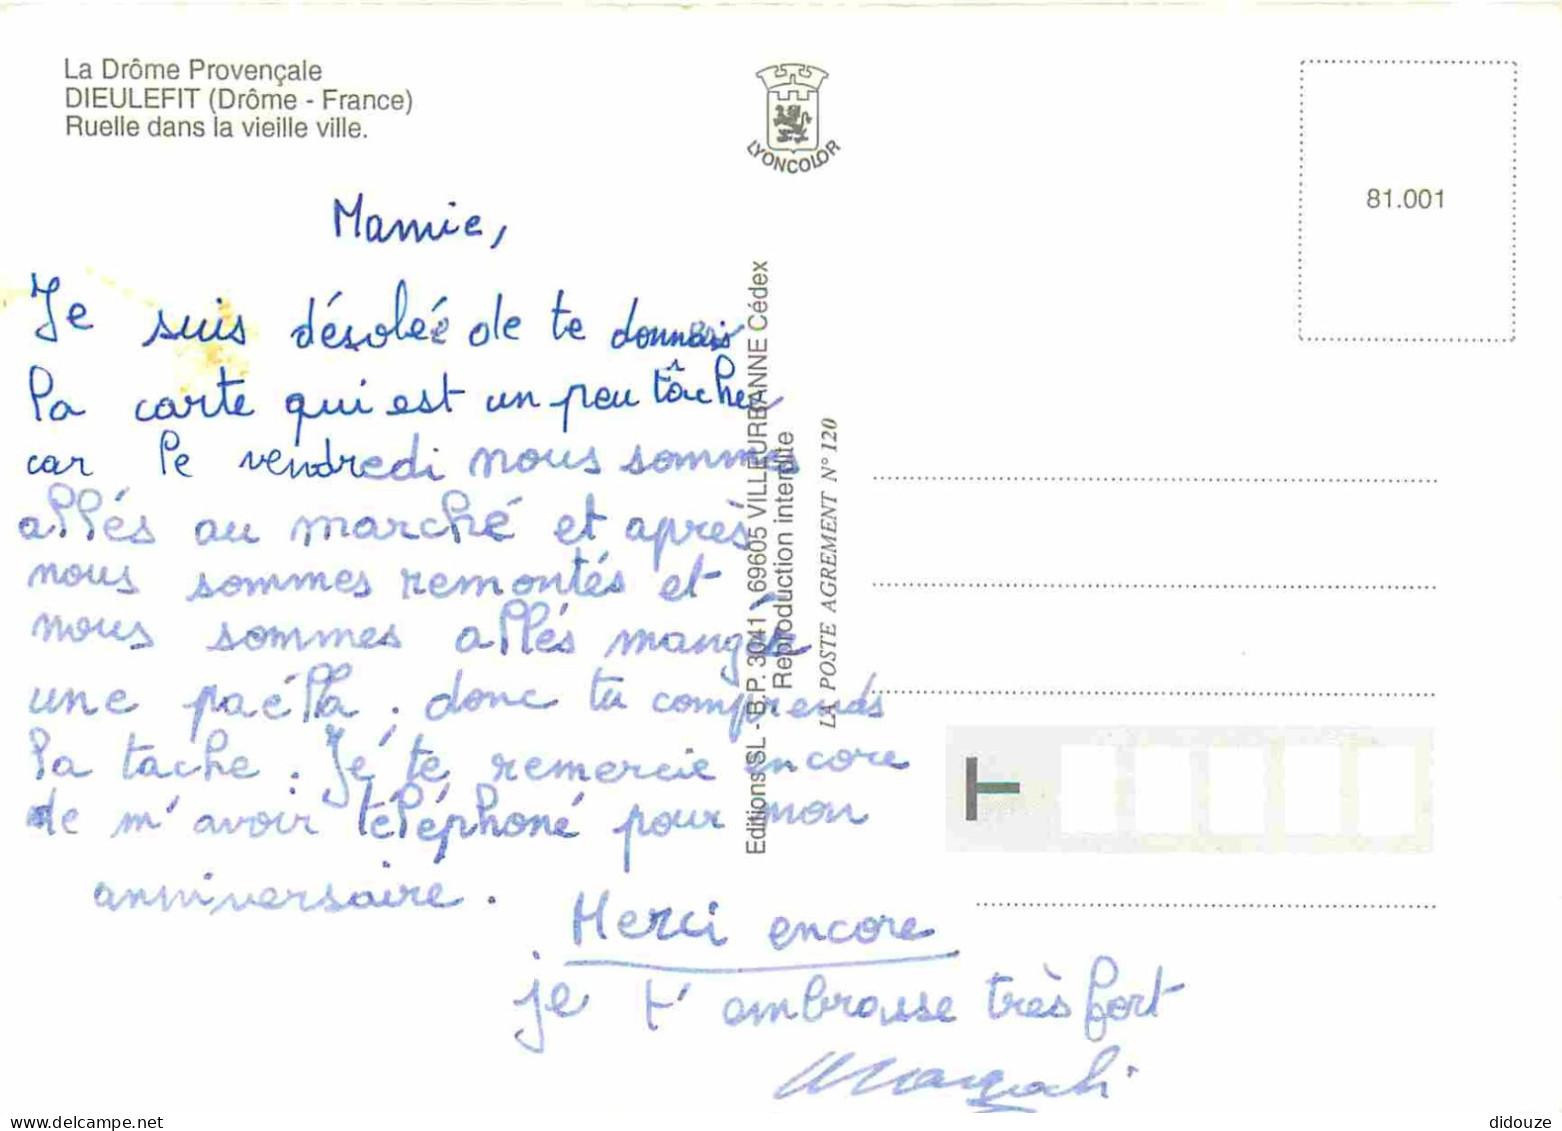 La Drôme Provençale
DIEULEFIT (Drôme - France)
Ruelle dans la vieille ville.
LYONCOLOR
81.001
Mamie,
Je suis désolée de te donner
la carte qui est un peu tâcher
car le vendredi nous sommes
allés au marché et après
nous sommes remontés et
nous sommes allés manger
une paélla. donc tu comprends
la tache. Je te remercie encore
de m'avoir téléphoné pour mon
anniversaire.
Merci encore
je t'embrasse très fort
Magali
Editions SL - B.P. 3041 - 69605 VILLEURBANNE Cédex
Reproduction interdite
LA POSTE AGREMENT N° 120
didouze